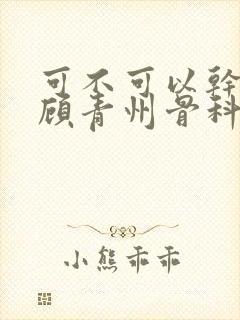 可不可以幹
顾青州骨科
小熊乖乖